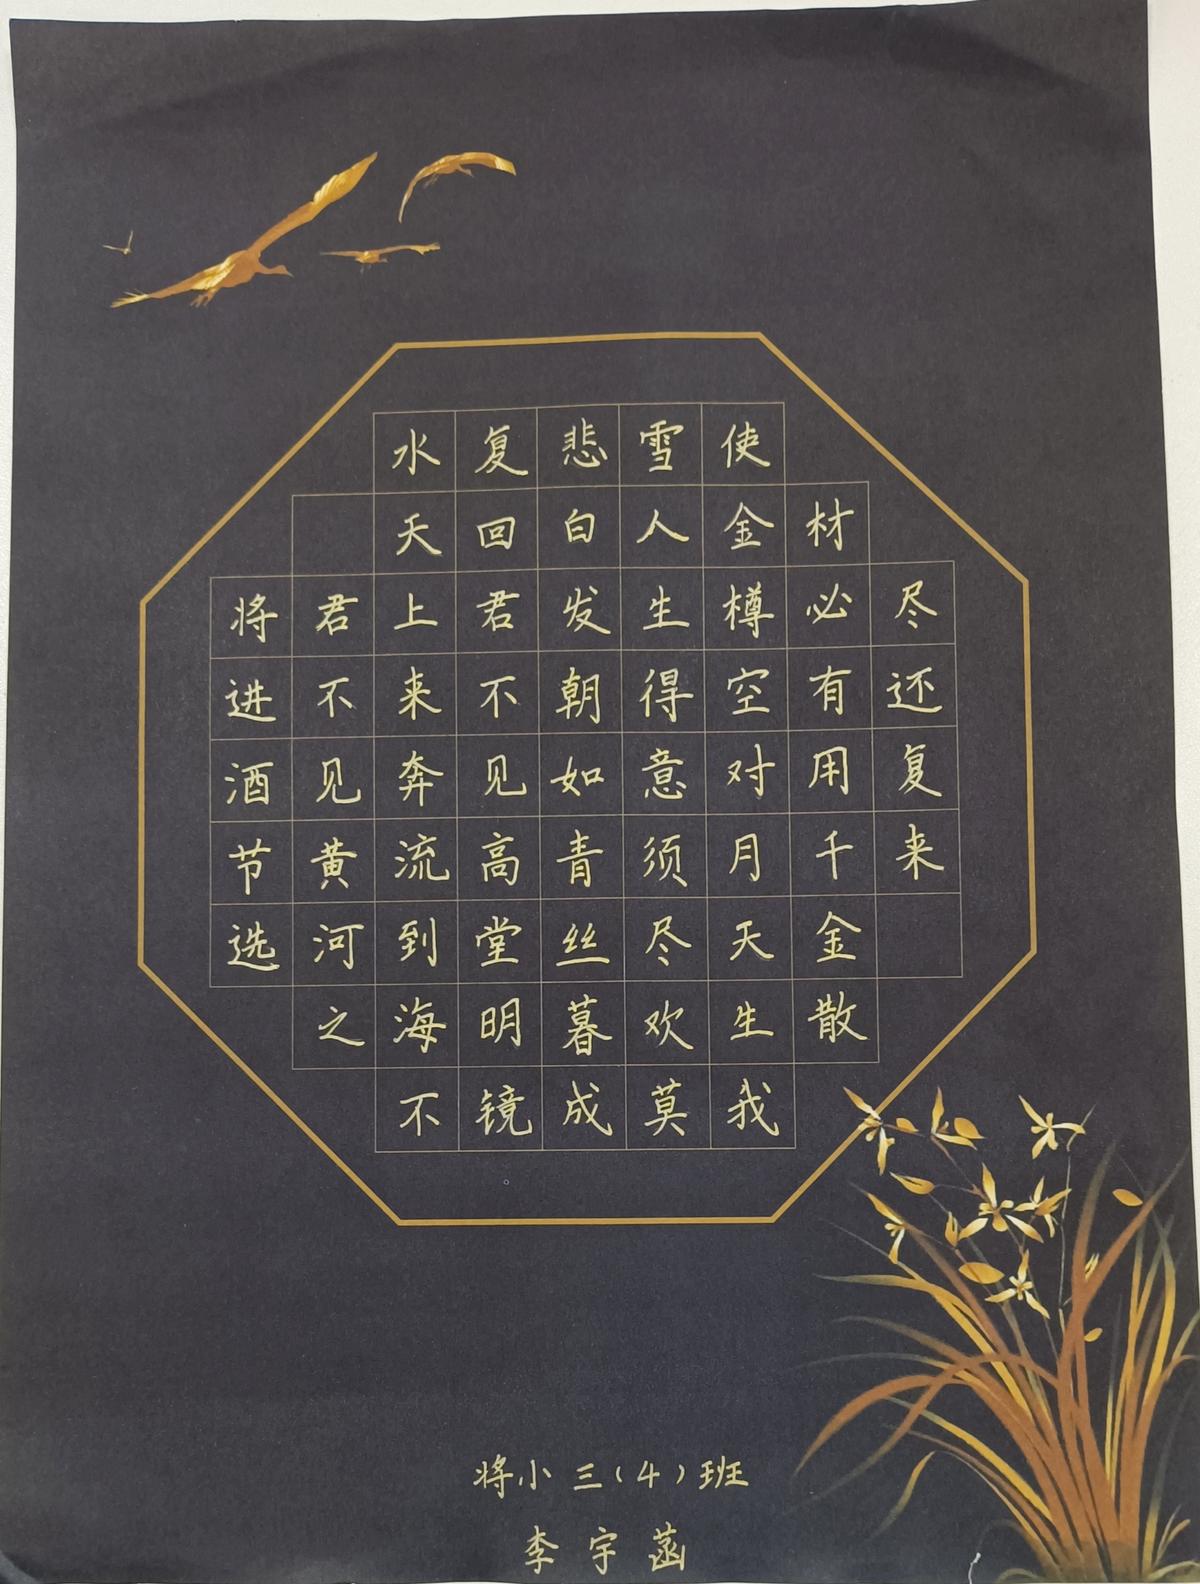 将进酒节选
君不见黄河之
水天上来奔流到海不
复回君不见高堂明镜
悲白发朝如青丝暮成
雪人生得意须尽欢莫
使金樽空对月天生我
材必有用千金散
尽还复来
将小三(4)班
李宇菡